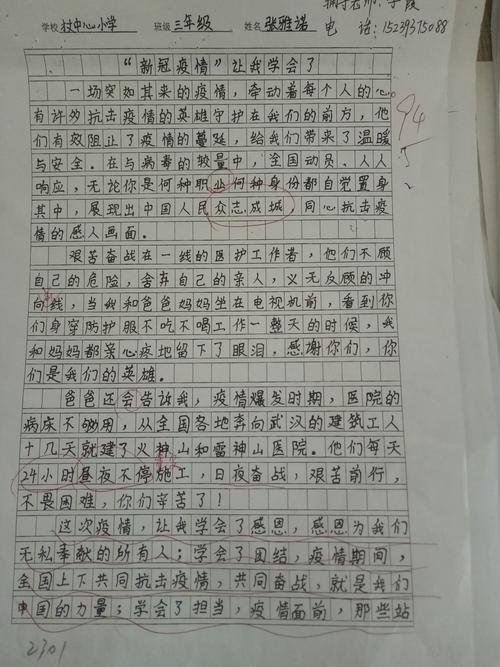 辅导老师:李霞
学校 技中心小学 班级 三年级 姓名 张雅诺 电 话:15239375088
“新冠疫情”让我学会了
一场突如其来的疫情,牵动着每个人的心
有许多抗击疫情的英雄守护在我们的前方,他
们有效阻止了疫情的蔓延,给我们带来了温暖
与安全。在与病毒的较量中,全国动员、人人
响应,无论你是何种职业何种身份都自觉置身
其中,展现出中国人民众志成城,同心抗击疫
情的感人画面。
艰苦奋战在一线的医护工作者,他们不顾
自己的危险,舍弃自己的亲人,义无反顾的冲
向线,当我和爸爸妈妈坐在电视机前,看到你
们身穿防护服不吃不喝工作一整天的时候,我
和妈妈都亲心疼地留下了眼泪,感谢你们,你
们是我们的英雄。
爸爸还会告诉我,疫情爆发时期,医院的
病床不够用,从全国各地奔向武汉的建筑工人
十几天就建了火神山和雷神山医院。他们每天
24小时昼夜不停施工,日夜奋战,艰苦前行,
不畏困难,你们辛苦了!
这次疫情,让我学会了感恩,感恩为我们
无私奉献的所有人;学会了团结,疫情期间,
全国上下共同抗击疫情,共同奋战,就是我们
中国的力量;学会了担当,疫情面前,那些站
94
2301